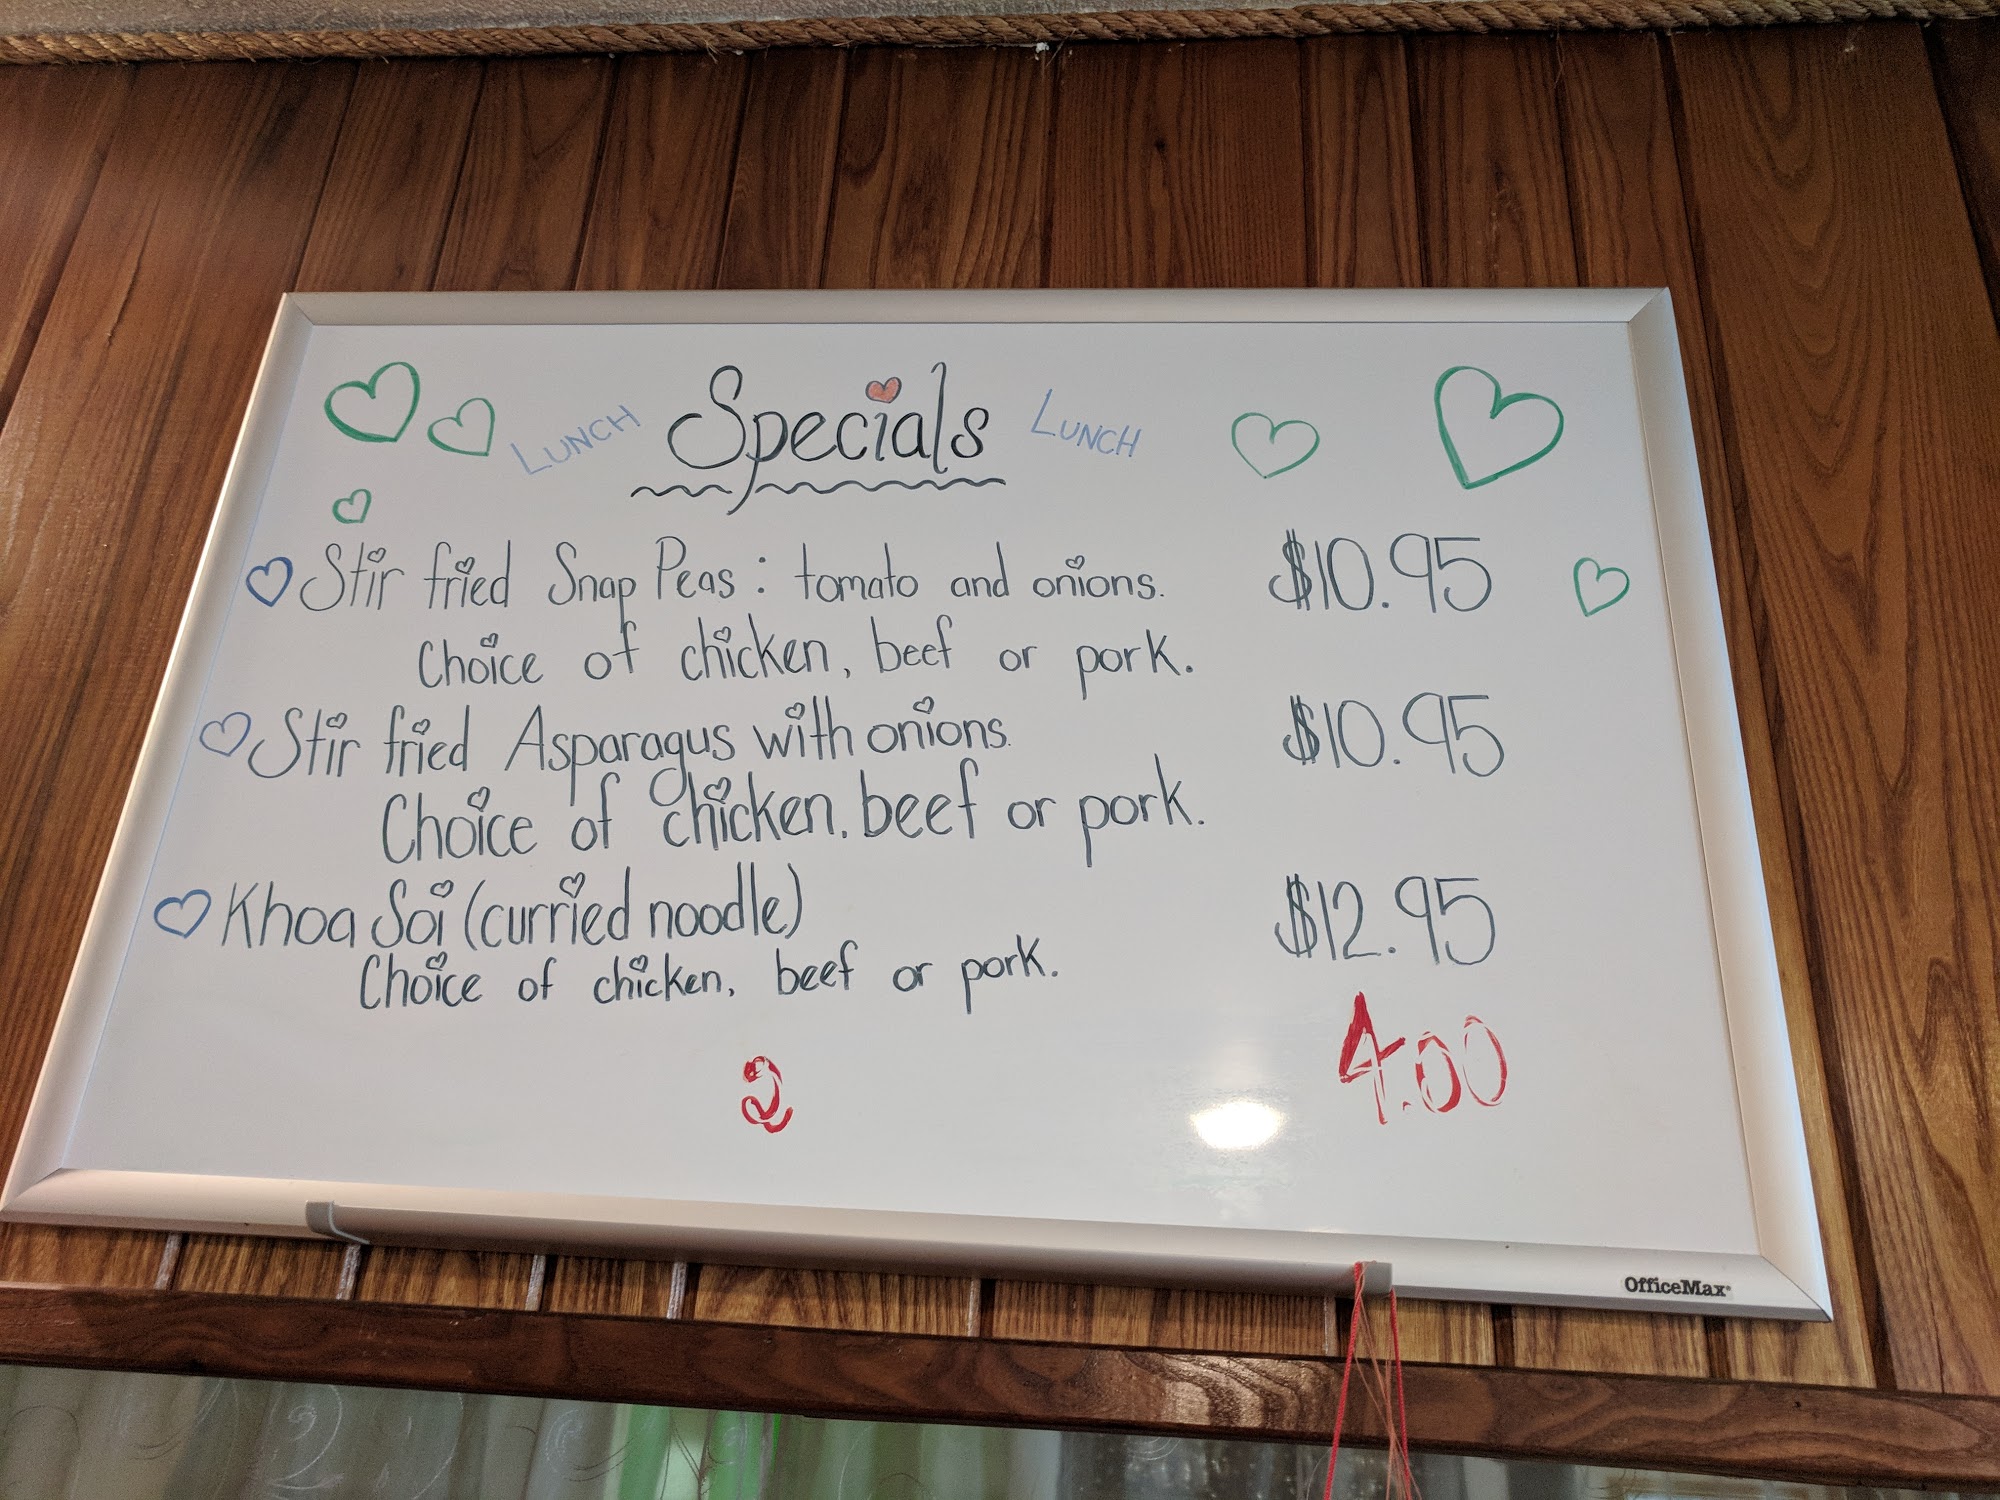 LUNCH Specials LUNCH
Stir fried Snap Peas: tomato and onions. $10.95
Choice of chicken, beef or pork.
Stir fried Asparagus with onions. $10.95
Choice of chicken, beef or pork.
Khoa Soi (curried noodle) $12.95
Choice of chicken, beef or pork.
2 4.00
OfficeMax